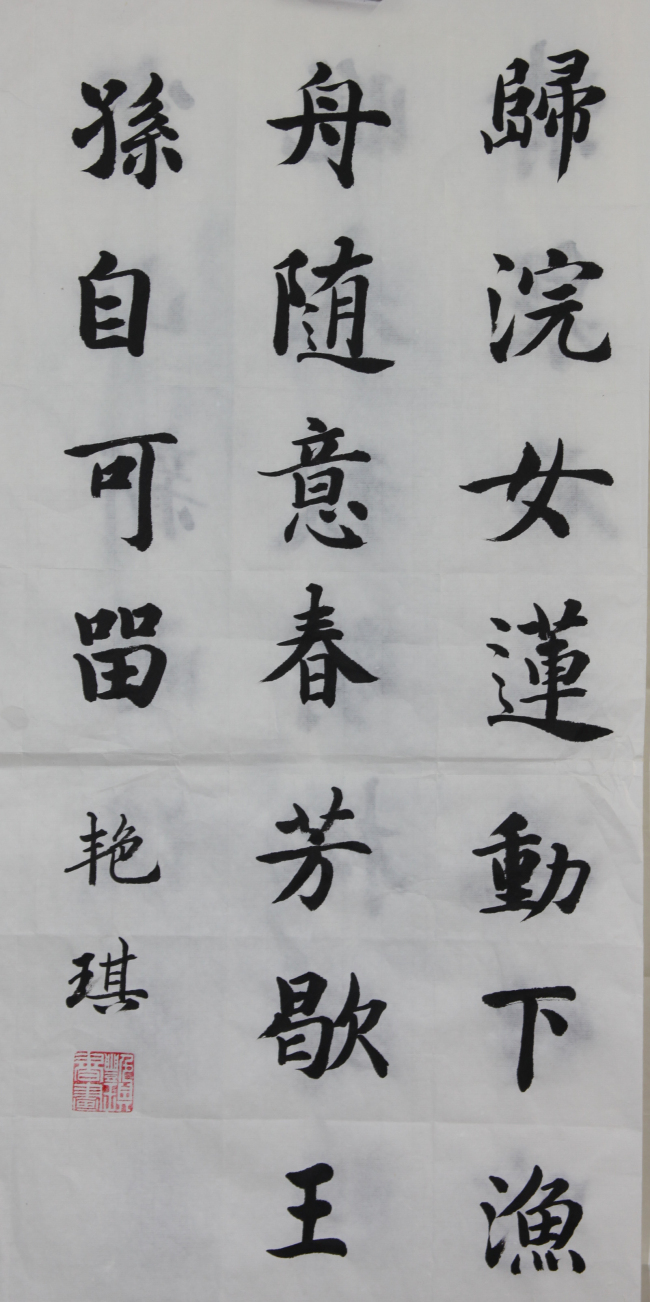 歸浣女蓮動下漁
舟随意春芳歇王
孫自可留艳琪